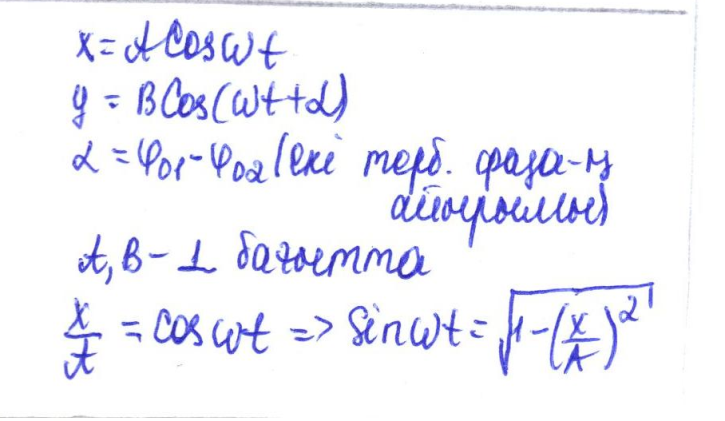 x = A Cos ωt
y = B Cos(ωt + α)
α = φ₀₁ - φ₀₂ (екі терб. фаза-ң
айырымы)
A, B - ⊥ бағытта
x/A = cos ωt => Sin ωt = √(1 - (x/A)²)